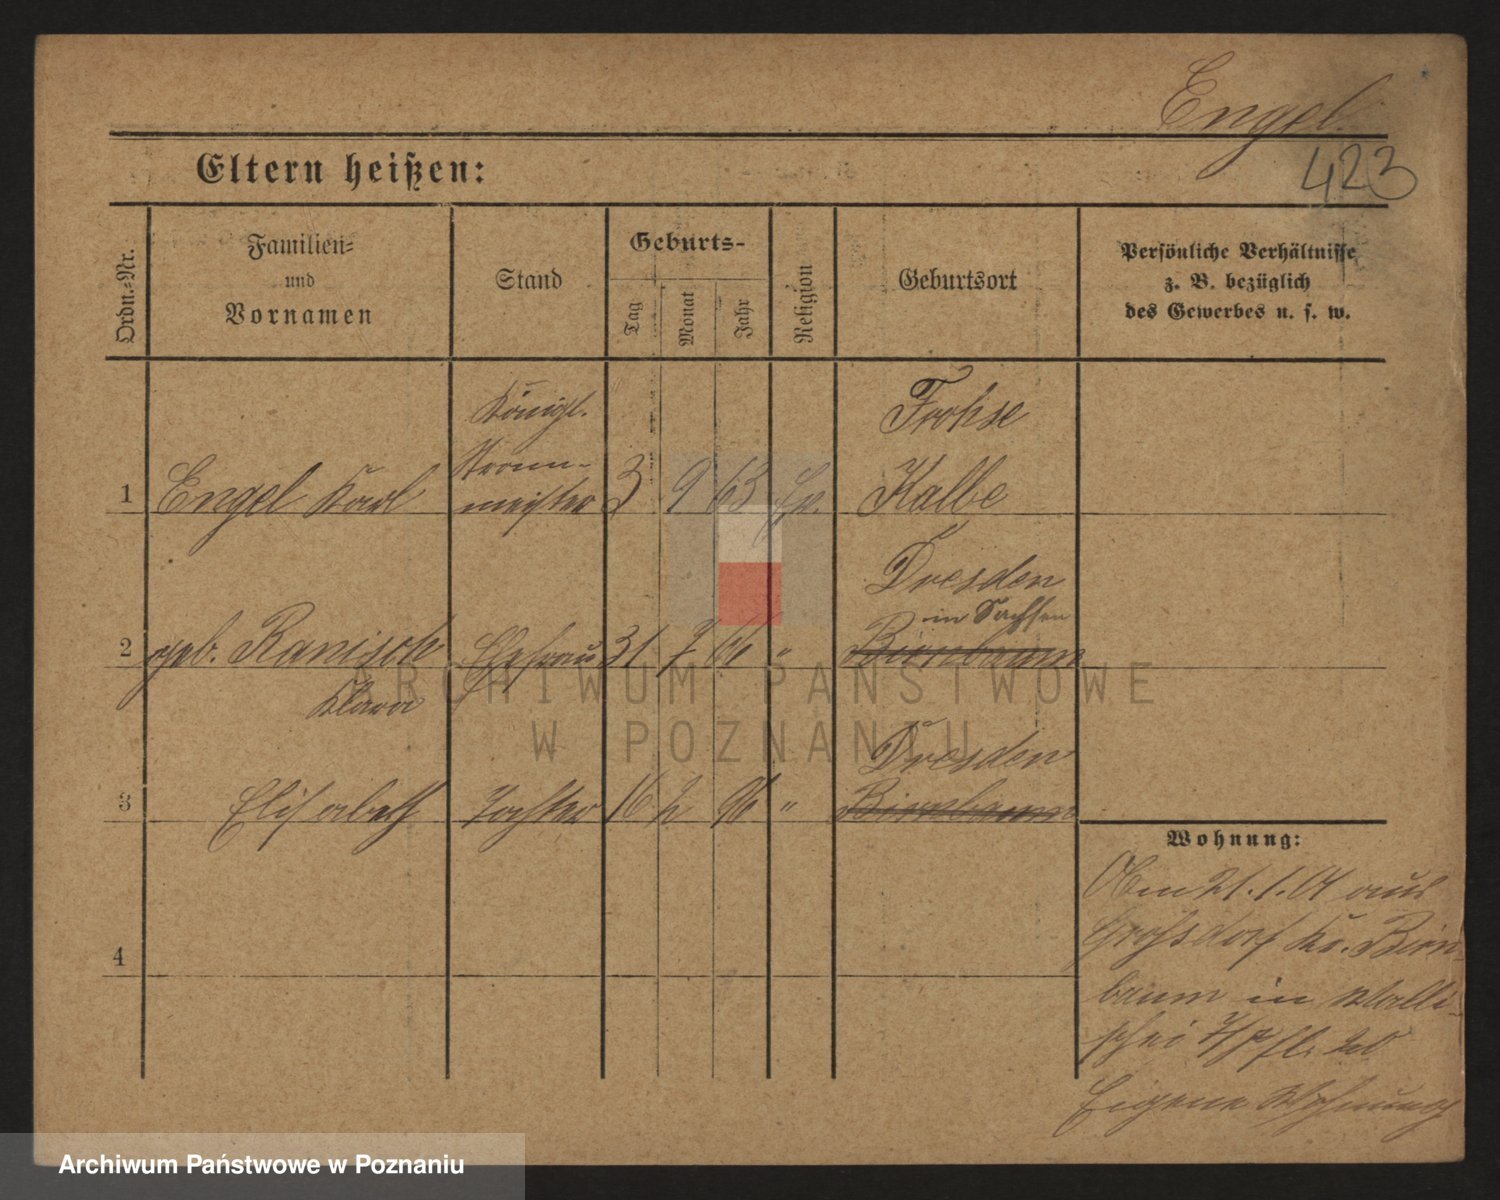 Engel.
423
Eltern heißen:
Ordn.-Nr.
Familien-
und
Vornamen
Stand
Geburts-
Tag
Monat
Jahr
Religion
Geburtsort
Persönliche Verhältnisse
z. B. bezüglich
des Gewerbes u. s. w.
Königl.
Strom-
meister
Frohse
1 Engel Karl 3 9 63 Ev. Kalbe
Dresden
in Sachsen
2 geb. Ranisch Ehefrau 31 " Birnbaum
Klara
Dresden
3 Elisabeth Tochter 16 2 96 " Birnbaum
4
Wohnung:
Am 21.1.01 aus
Grossdorf Kr. Birn-
baum in Walli-
schei
Eigene Wohnung
ARCHIWUM PAŃSTWOWE
W POZNANIU
Archiwum Państwowe w Poznaniu